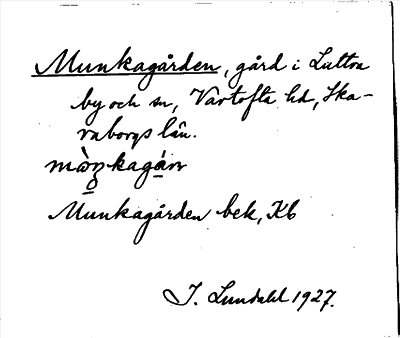 Munkagården, gård i Luttra
by och sn, Vartofta hd, Ska-
raborgs län.
Munkagården bek, Kb
J. Lundahl 1927.